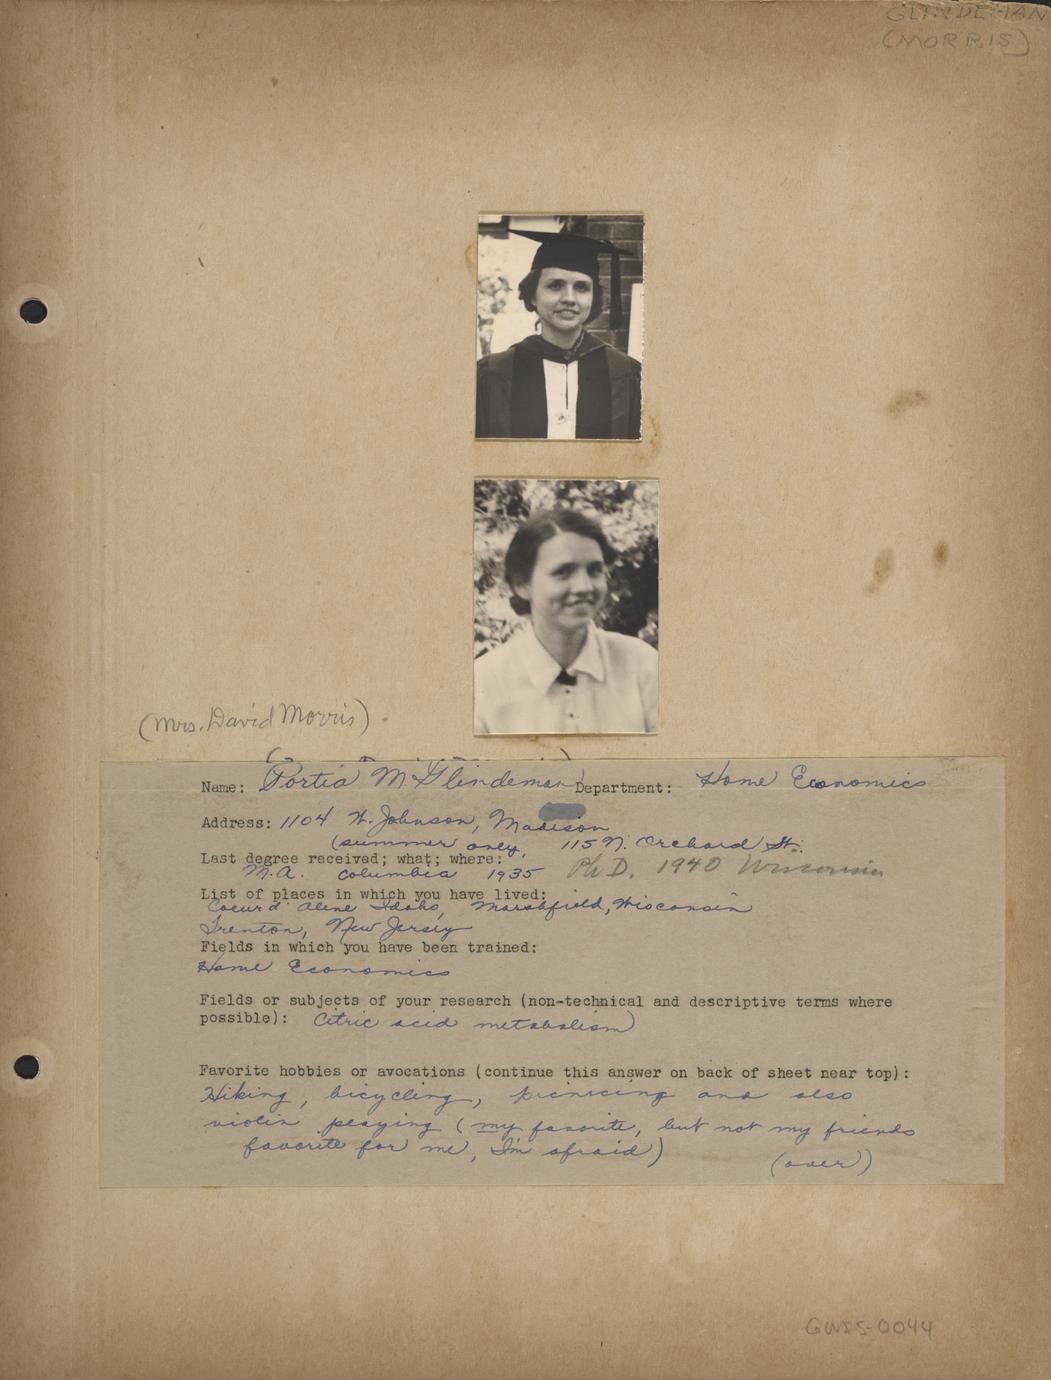 GLINDEMAN
(MORRIS)
(Mrs. David Morris)
Name: (Portia M. Glindeman) Department: Home Economics
Address: 1104 W. Johnson, Madison
(summer only, 115 N. Orchard St.
Last degree received; what; where:
M.A. Columbia 1935 Ph D. 1940 Wisconsin
List of places in which you have lived:
Coeur d' Alene Idaho, Marshfield, Wisconsin
Trenton, New Jersey
Fields in which you have been trained:
Home Economics
Fields or subjects of your research (non-technical and descriptive terms where
possible): Citric acid metabolism
Favorite hobbies or avocations (continue this answer on back of sheet near top):
Hiking, bicycling, picnicing and also
violin playing (my favorite, but not my friends
favorite for me, I'm afraid)
(over)
GWSS-0044